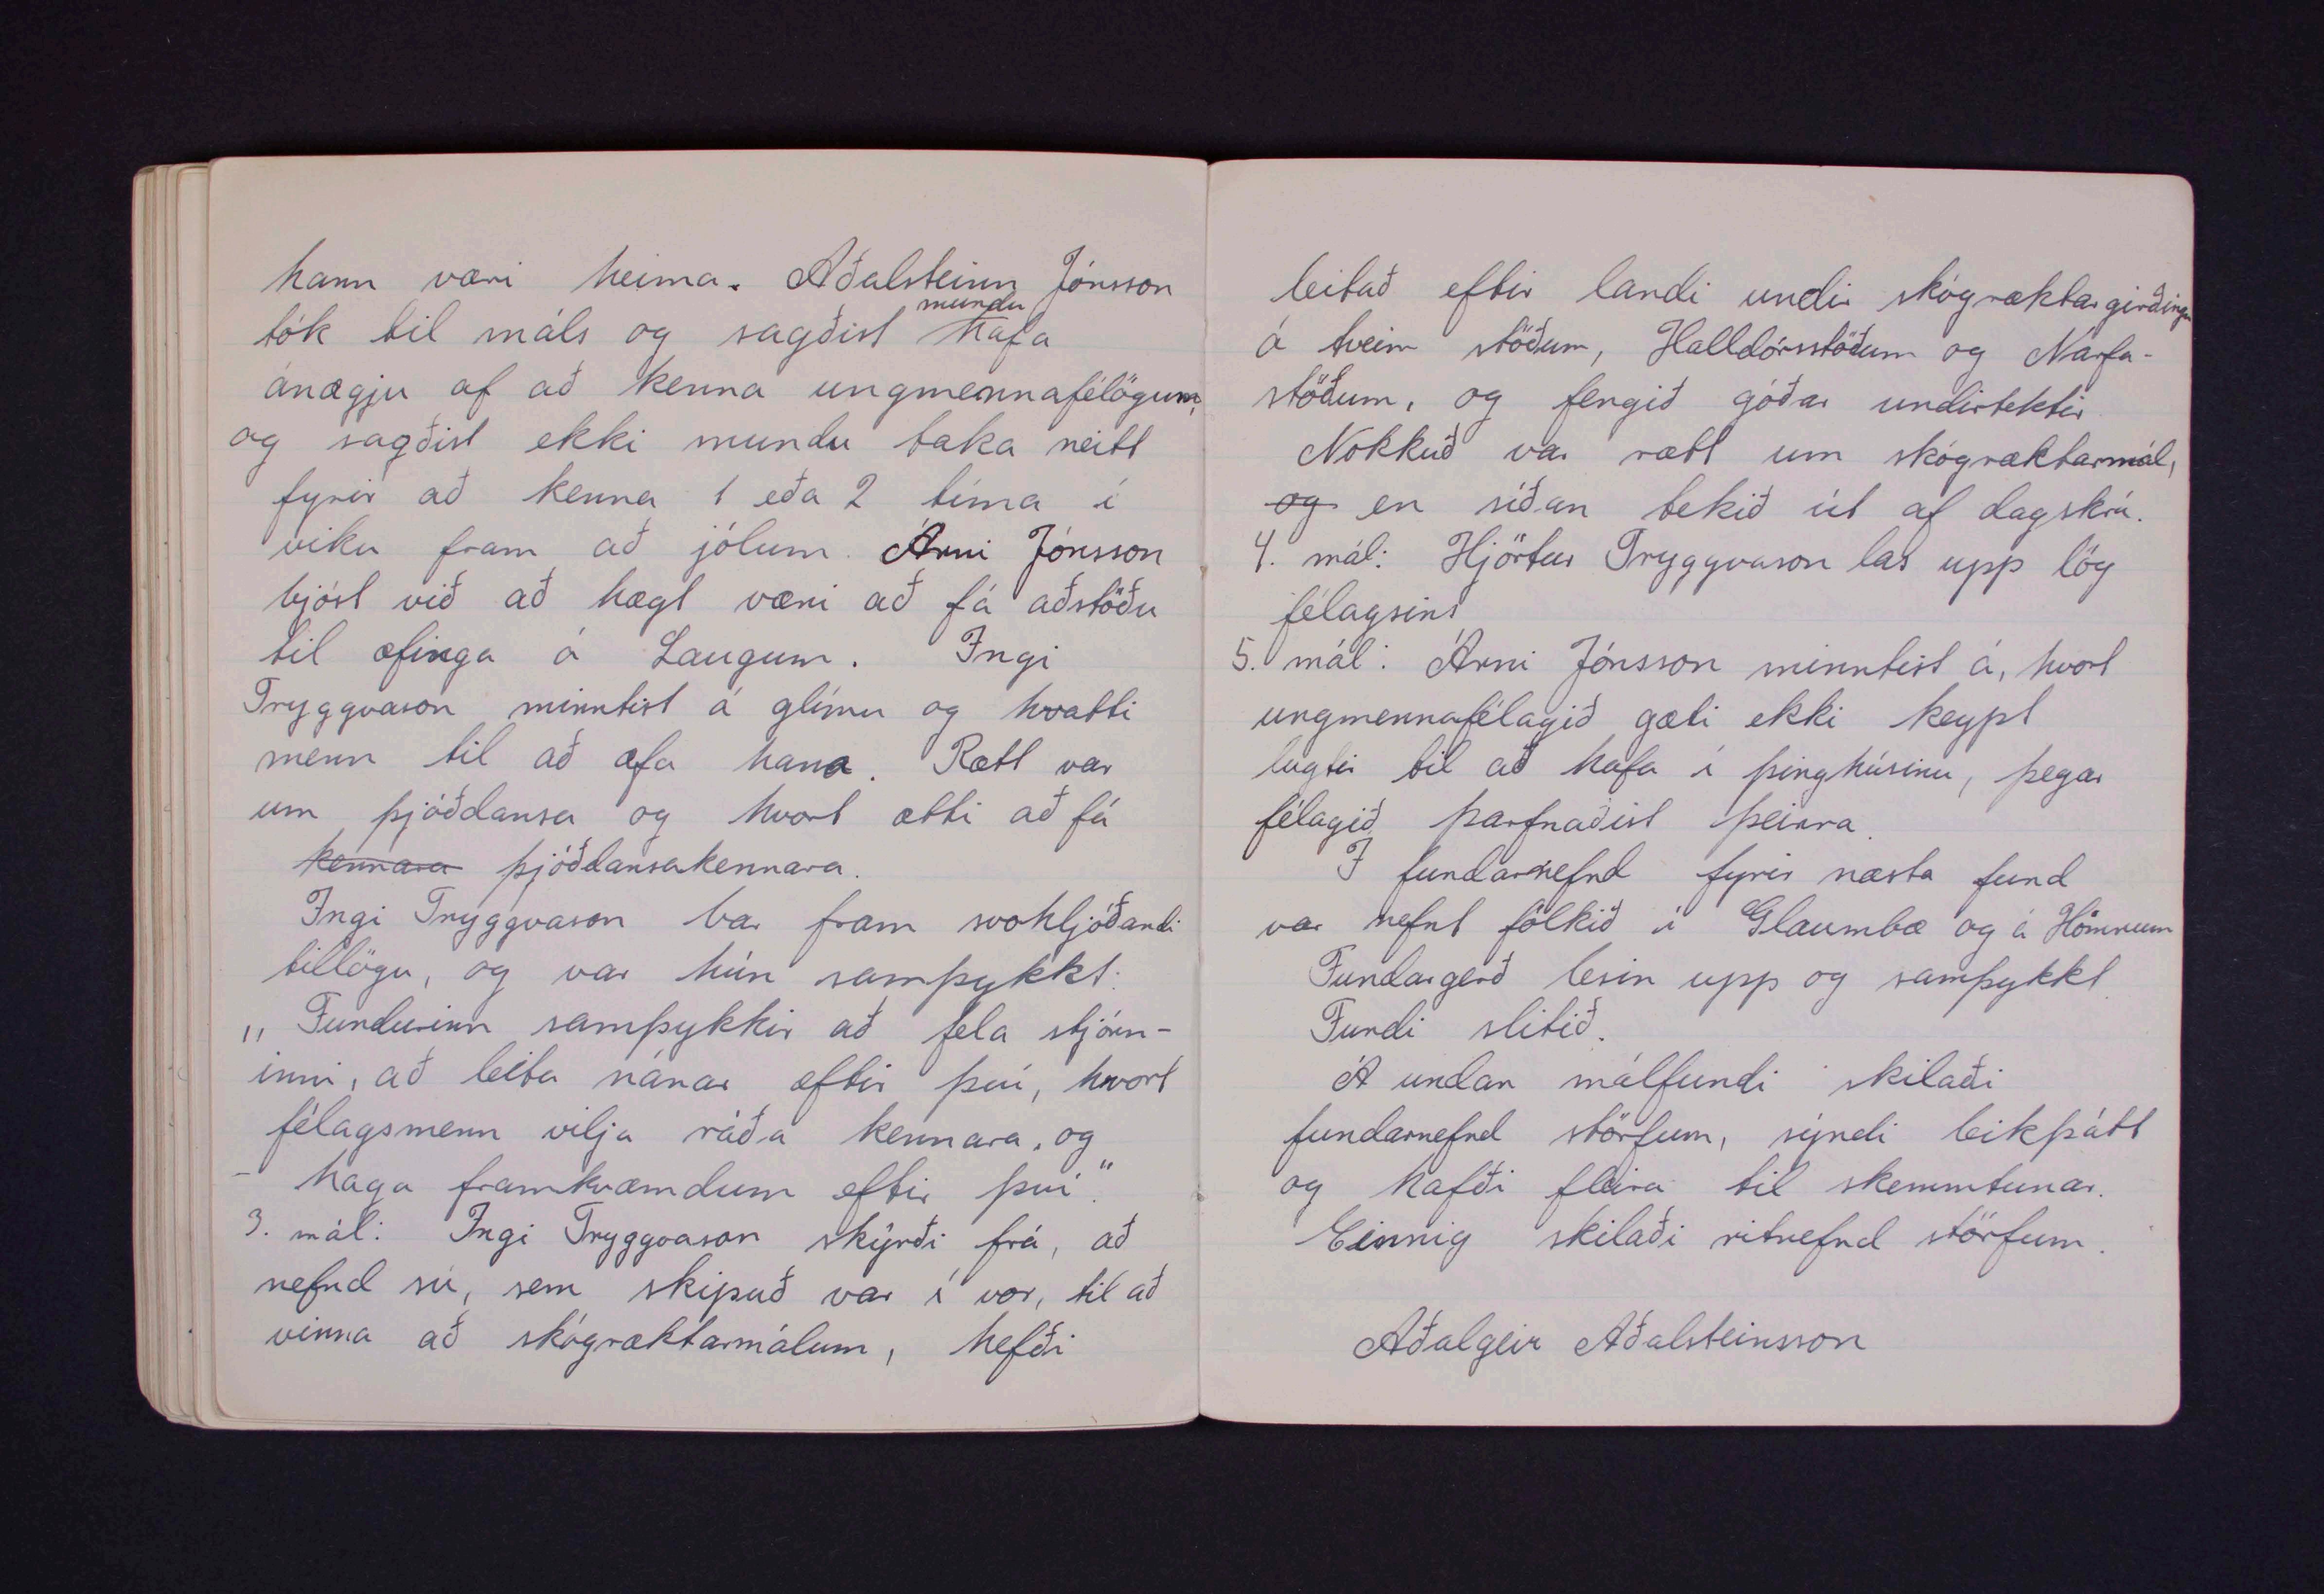 hann væri heima. Aðalsteinn Jónsson
tók til máls og sagðist mundu hafa
ánægju af að kenna ungmennafélögum,
og sagðist ekki mundu taka neitt
fyrir að kenna 1 eða 2 tíma í
viku fram að jólum. Árni Jónsson
bjóst við að hægt væri að fá aðstöðu
til æfinga á Laugum. Ingi
Tryggvason minntist á glímu og hvatti
menn til að æfa hana. Rætt var
um þjóðdansa og hvort ætti að fá
kennara þjóðdansakennara.
Ingi Tryggvason bar fram svohljóðandi
tillögu, og var hún samþykkt:
„Fundurinn samþykkir að fela stjórn-
inni, að leita nánar eftir því, hvort
félagsmenn vilja ráða kennara, og
- haga framkvæmdum eftir því".
3. mál: Ingi Tryggvason skýrði frá, að
nefnd sú, sem skipuð var í vor, til að
vinna að skógræktarmálum, hefði
leitað eftir landi undir skógræktargirðingu
á tveim stöðum, Halldórsstöðum og Narfa-
stöðum, og fengið góðar undirtektir
Nokkuð var rætt um skógræktarmál,
og en síðan tekið út af dagskrá.
4. mál: Hjörtur Tryggvason las upp lög
félagsins
5. mál: Árni Jónsson minntist á, hvort
ungmennafélagið gæti ekki keypt
lugtir til að hafa í þinghúsinu, þegar
félagið þarfnaðist þeirra.
Í fundarnefnd fyrir næsta fund
var nefnt fólkið í Glaumbæ og á Hömrum
Fundargerð lesin upp og samþykkt.
Fundi slitið.
Á undan málfundi skilaði
fundarnefnd störfum, sýndi leikþátt
og hafði fleira til skemmtunar.
Einnig skilaði ritnefnd störfum.
Aðalgeir Aðalsteinsson